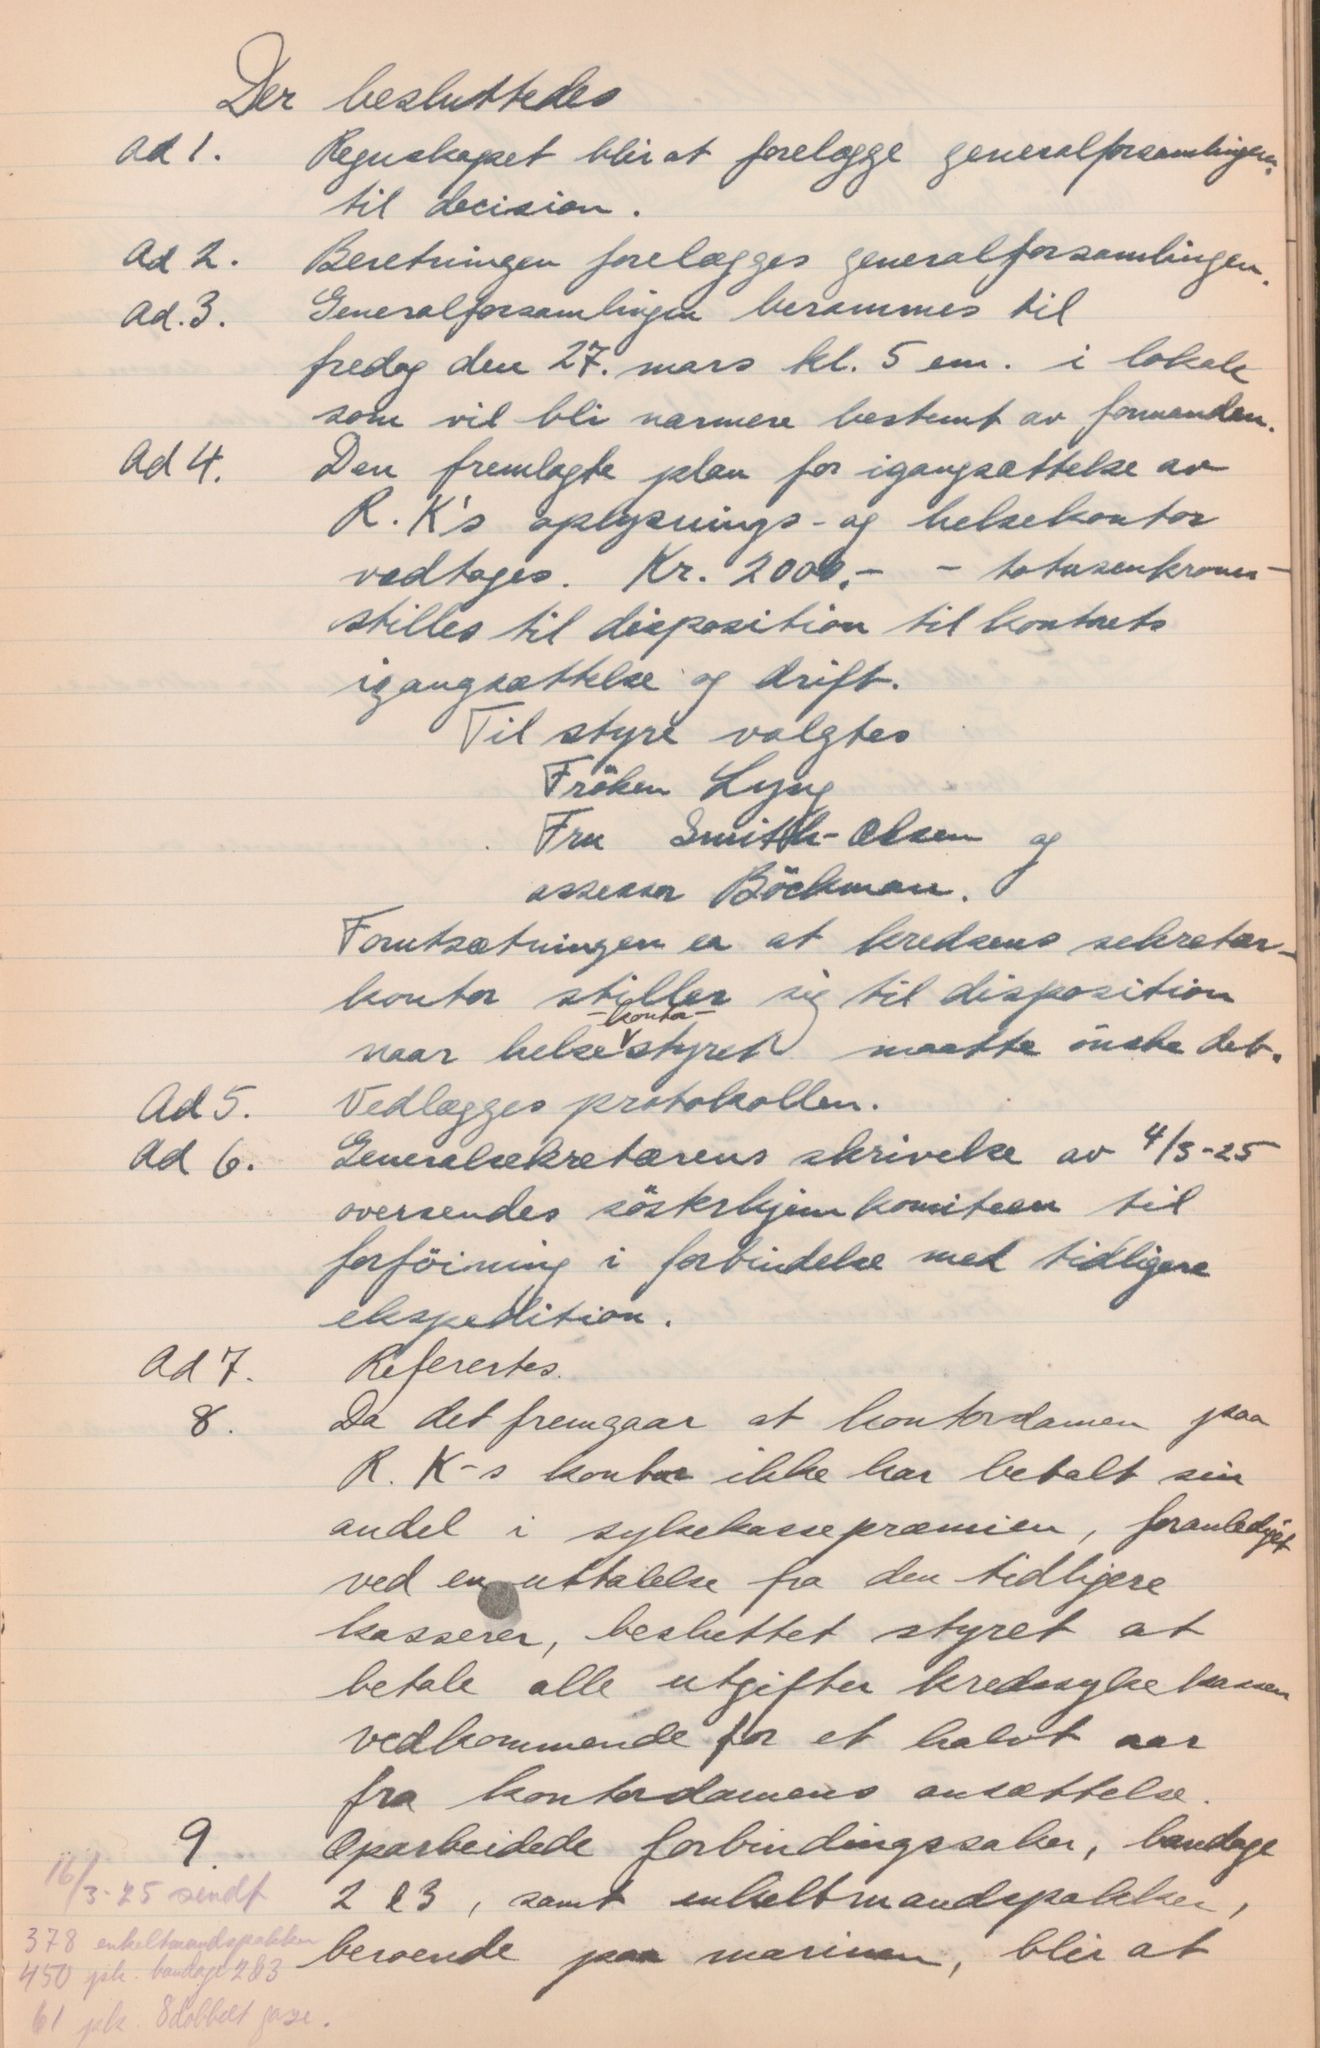 Der besluttedes
Ad 1. Regnskapet blir at forelægge generalforsamlingen
til decision.
Ad 2. Beretningen forelægges generalforsamlingen.
Ad. 3. Generalforsamlingen berammes til
fredag den 27. mars kl. 5 em. i lokale
som vil bli nærmere bestemt av formanden.
Ad 4. Den fremlagte plan for igangsættelse av
R. K's oplysnings- og helsekontor
vedtages. Kr. 2000.- - totusenkroner -
stilles til disposition til kontorets
igangsættelse og drift.
Til styre valgtes
Fröken Lyng
Fru Smith-Olsen og
assessor Böckman.
Forutsætningen er at kredsens sekretær-
kontor stiller sig til disposition
-kontor-
naar helsestyret maatte önske det.
Ad 5. Vedlægges protokollen.
Ad 6. Generalsekretærens skrivelse av 4/3-25
oversendes sösterhjemkomiteen til
forföining i forbindelse med tidligere
ekspedition.
Ad 7. Referertes.
8. Da det fremgaar at kontordamen paa
R. K-s kontor ikke har betalt sin
andel i sykekassepræmien, foranlediget
ved en uttalelse fra den tidligere
kasserer, besluttet styret at
betale alle utgifter kredssykekassen
vedkommende for et halvt aar
fra kontordamens ansættelse.
9. Oparbeidede forbindingssaker, bandage
2 & 3, samt enkeltmandspakker,
beroende paa marinen, blir at
16/3-25 sendt
378 enkeltmandspakker
450 pk. bandage 2&3
61 pk. 8dobbelt gase.